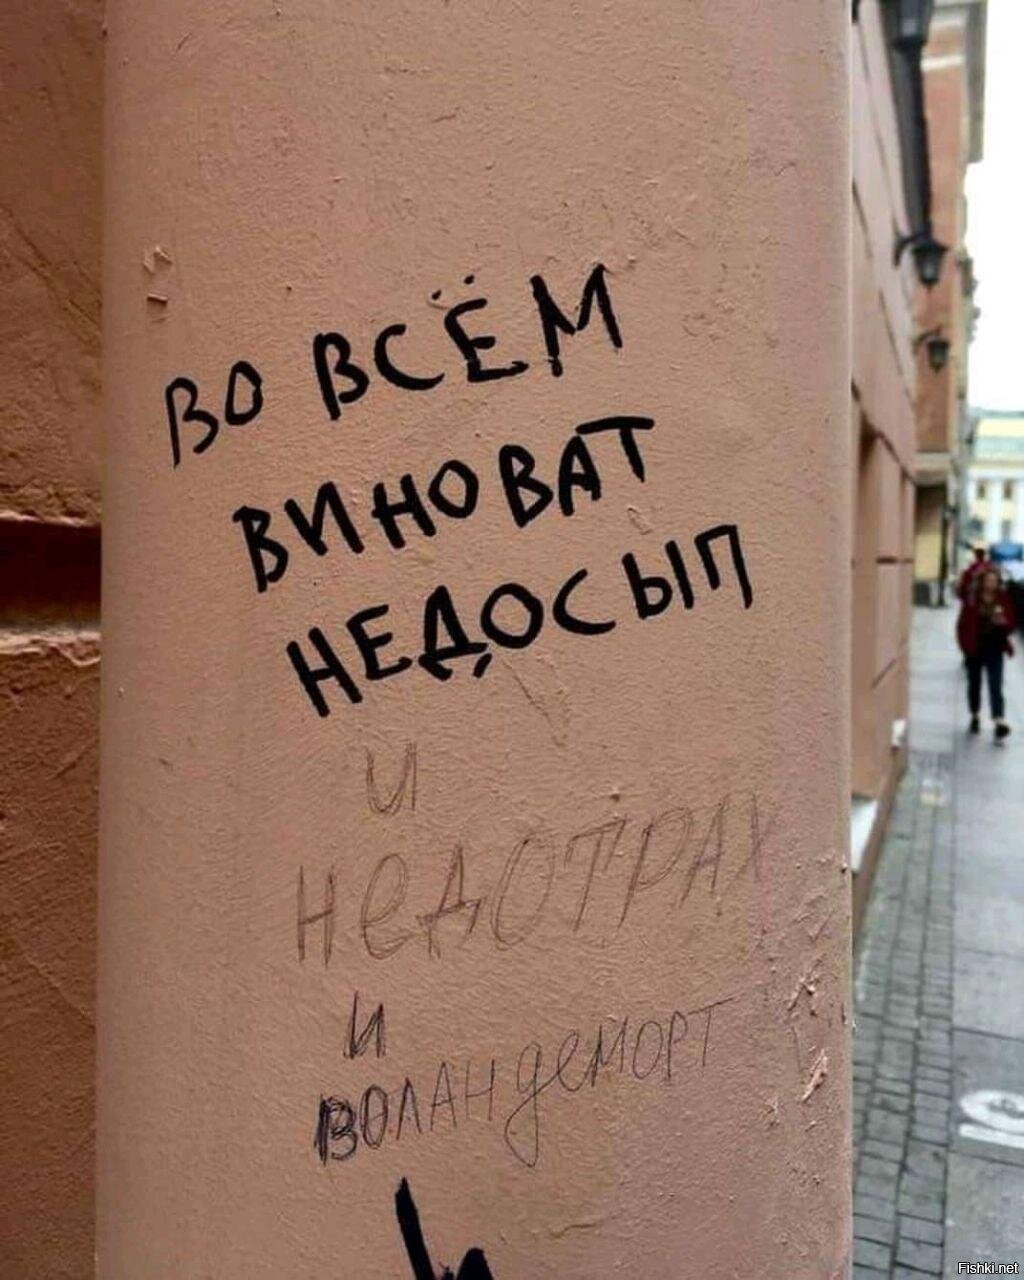 ВО ВСЁМ
ВИНОВАТ
НЕДОСЫП
и
НеДОТРАХ
и
ВОЛАНдеМОРТ
Fishki.net